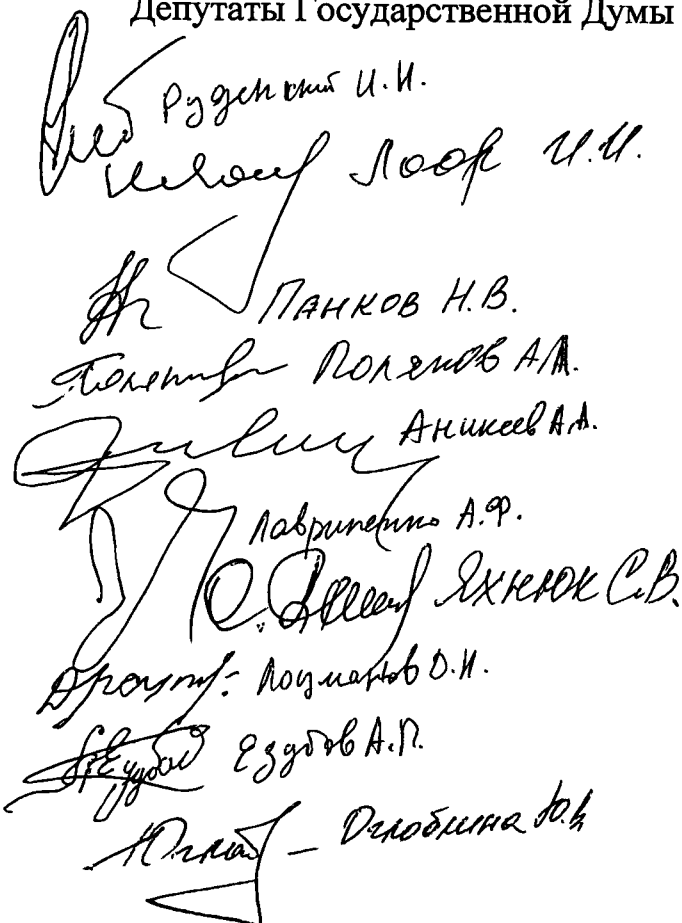 Депутаты Государственной Думы
Руденский И.Н.
Лоор И.И.
Панков Н.В.
Поляков А.А.
Аникеев А.А.
Лавриненко А.Ф.
Яхнюк С.В.
Лоцманов Д.Н.
Ездубов А.П.
Оглоблина Ю.В